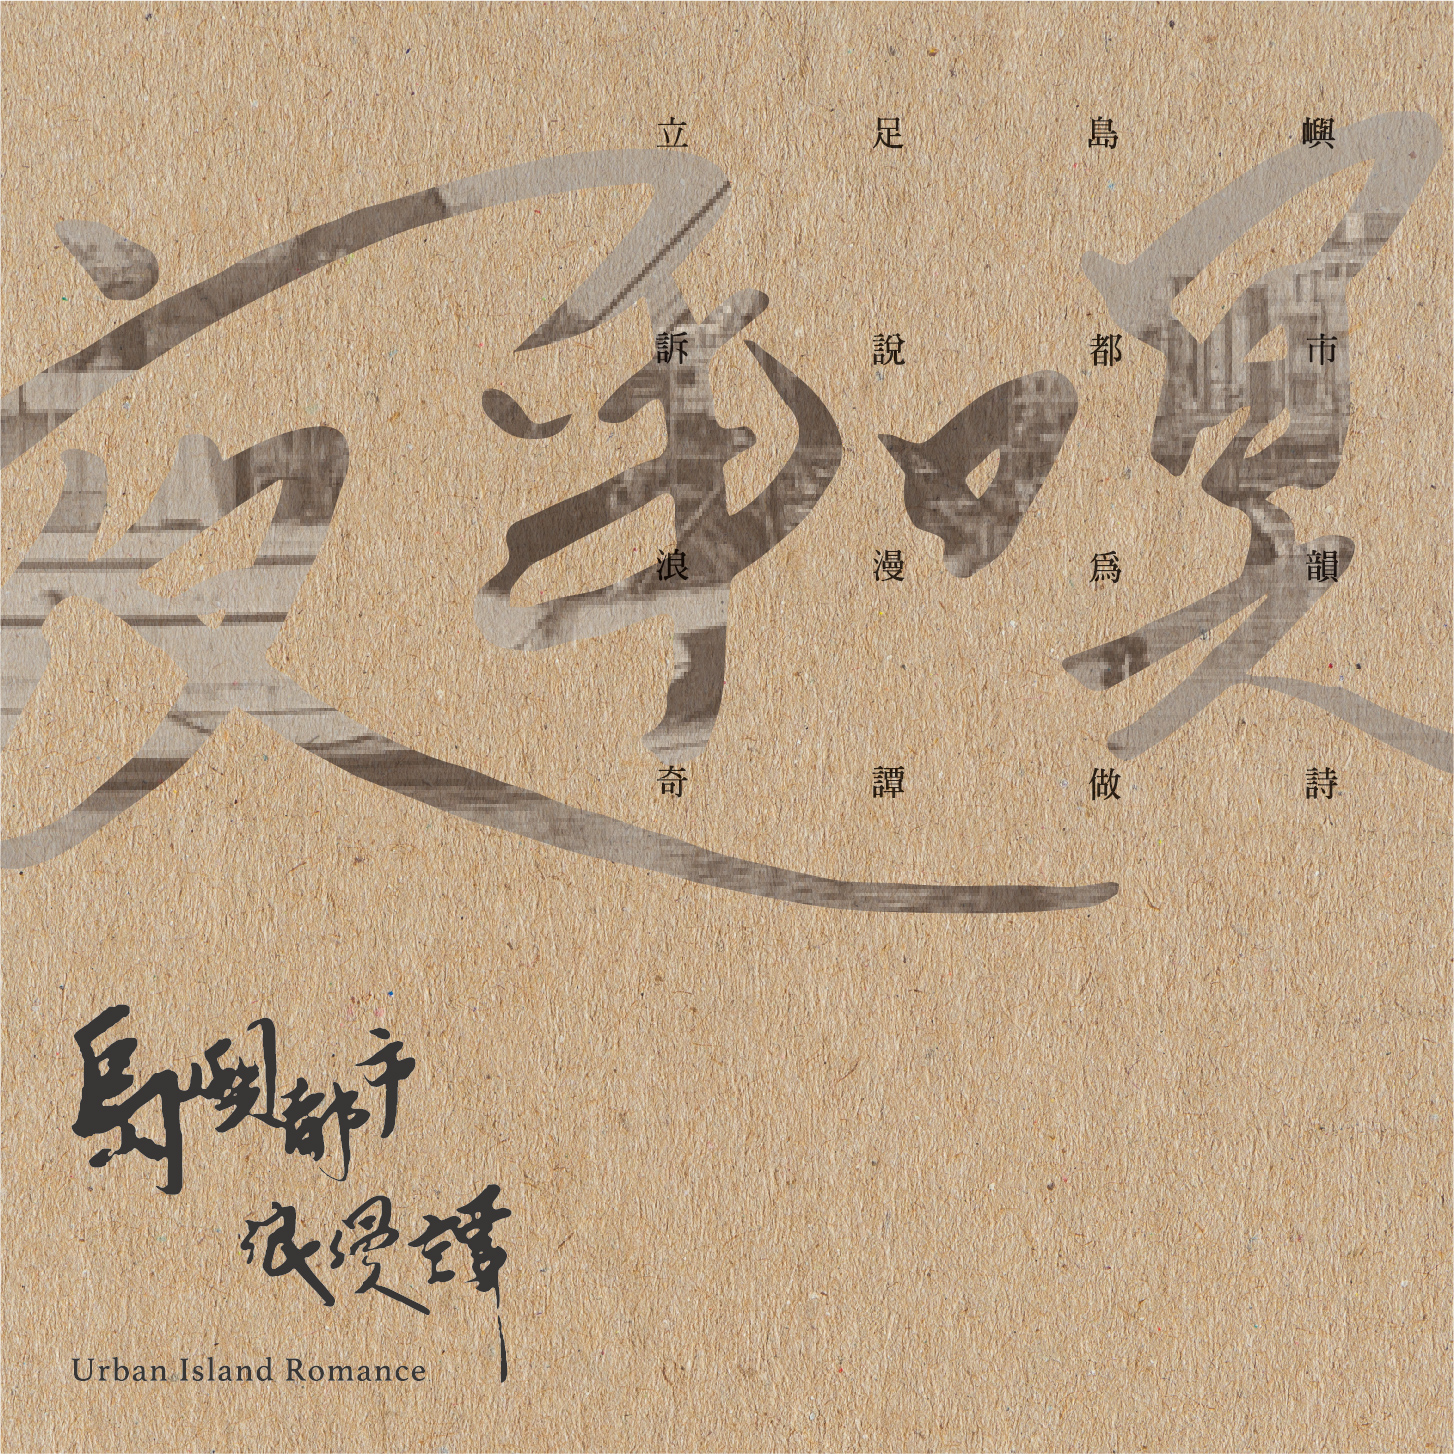 立足島嶼
訴說都市
浪漫為韻
奇譚做詩
島嶼都市
浪漫譚
Urban Island Romance